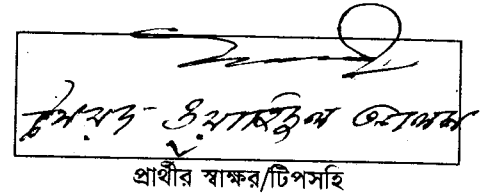 সৈয়দ ওয়াহিদুল আলম
প্রার্থীর স্বাক্ষর/টিপসহি